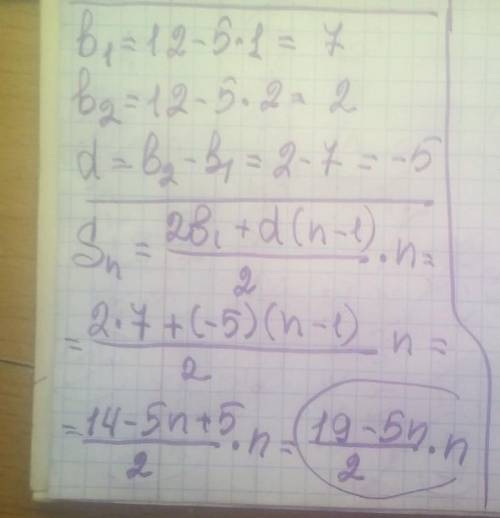 b₁ = 12 - 5 · 1 = 7
b₂ = 12 - 5 · 2 = 2
d = b₂ - b₁ = 2 - 7 = -5
Sₙ = (2b₁ + d(n-1))/2 · n =
= (2 · 7 + (-5)(n-1))/2 n =
= (14 - 5n + 5)/2 · n = (19 - 5n)/2 · n